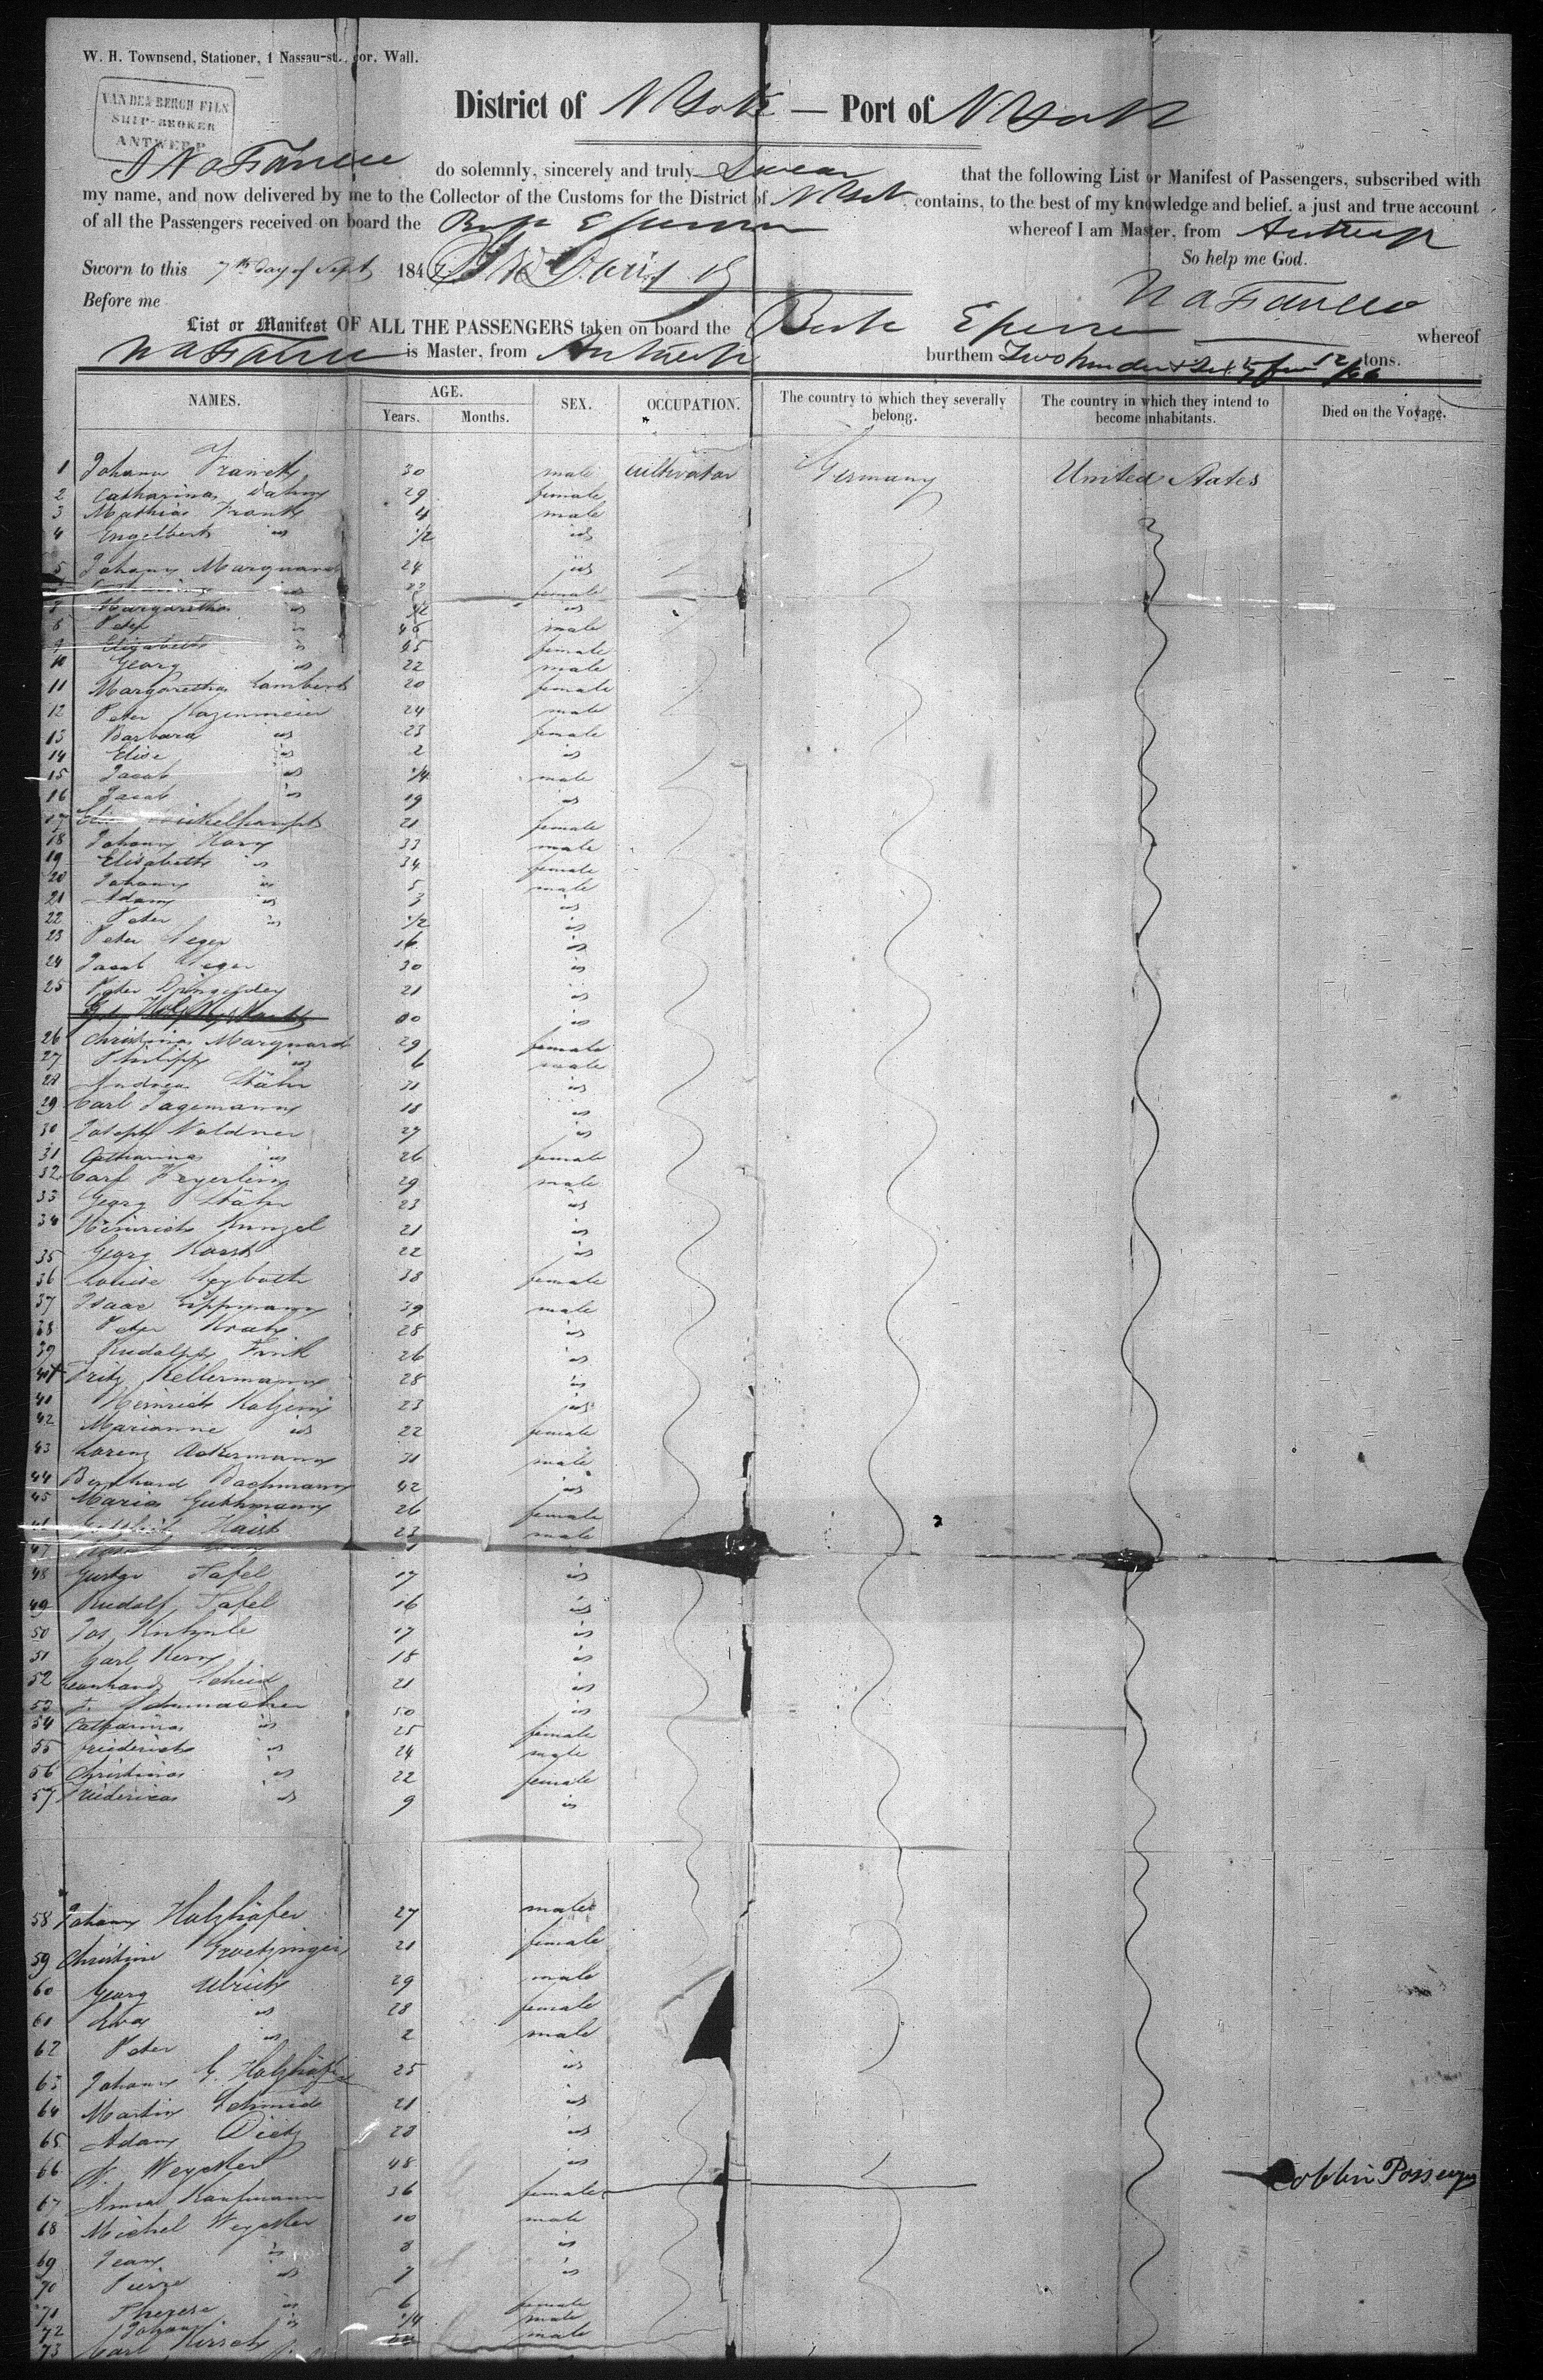 W. H. Townsend, Stationer, 1 Nassau-st., cor. Wall.
VAN DEN BERGH FILS
SHIP-BROKER
ANTWERP
District of N York — Port of N York
I do solemnly, sincerely and truly Swear that the following List or Manifest of Passengers, subscribed with
my name, and now delivered by me to the Collector of the Customs for the District of N York, contains, to the best of my knowledge and belief, a just and true account
of all the Passengers received on board the whereof I am Master, from Antwerp
Sworn to this 7th day of Sept 1847 So help me God.
Before me
List or Manifest OF ALL THE PASSENGERS taken on board the Bark whereof
is Master, from Antwerp burthem Two hundred 12/ tons.
NAMES. AGE. Years. Months. SEX. OCCUPATION. The country to which they severally belong. The country in which they intend to become inhabitants. Died on the Voyage.
1 Johann Franck 30 male cultivator Germany United States
2 Catharina 29 female
3 Mathias Frank 4 male
4 Engelbert id 1/2 id
5 Johann Marquard 24 id
id 22 female
Margaretha id 1/2 id
8 Peter id 46 male
9 Elizabeth id 45 female
10 Georg id 22 male
11 Margaretha Lambert 20 female
12 Peter Kazenmeier 24 male
13 Barbara id 23 female
14 Elise id 2 id
15 Jacob id 1/4 male
16 Jacob id 19 id
17 21 female
18 Johann Horn 33 male
19 Elisabeth id 34 female
20 Johann id 5 male
21 Adam id 3 id
22 Peter id 1/2 id
23 Peter Seger 16 id
24 Jacob Seger 30 id
25 Peter 21 id
id
26 Christina Marquard 29 female
27 Philipp id 6 male
28 Andreas Stähr 31 id
29 Carl Jagemann 18 id
30 Joseph Noldner 27 id
31 Catharina id 26 female
32 Carl Feyerlein 29 male
33 Georg Stähr 23 id
34 Heinrich Kunzel 21 id
35 Georg Karst 22 id
36 Louise Seyboth 38 female
37 Isaac Lippmann 39 male
38 Peter Kratz 28 id
39 Rudolph Fink 26 id
40 Fritz Kellermann 28 id
41 Heinrich 23 id
42 Marianne id 22 female
43 Lorenz Ackermann 31 male
44 Bernhard Bachmann 42 id
45 Maria Guthmann 26 female
46 Haist 23 male
47
48 Gustav Tafel 17 id
49 Rudolf Tafel 16 id
50 Jos. 17 id
51 Carl Kern 18 id
52 Leonhard Scheid 21 id
53 F. Schumacher 50 id
54 Catharina id 25 female
55 Friederich id 24 male
56 Christina id 22 female
57 Friederica id 9 id
58 Johann Holzhäfer 27 male
59 Christine Groetzinger 21 female
60 Georg Ulrich 29 male
61 Eva id 28 female
62 Peter id 2 male
63 Johann G. Holzhäfer 25 id
64 Martin Schmid 21 id
65 Adam Dietz 28 id
66 N. Weycker 48 id
67 Anna Kaufmann 36 female
68 Michel Weycker 10 male
69 Jean id 8 id
70 Pierre id 7 id
71 Therese id 6 female
72 Johann id 1/4 male
73 Carl Kirsch male